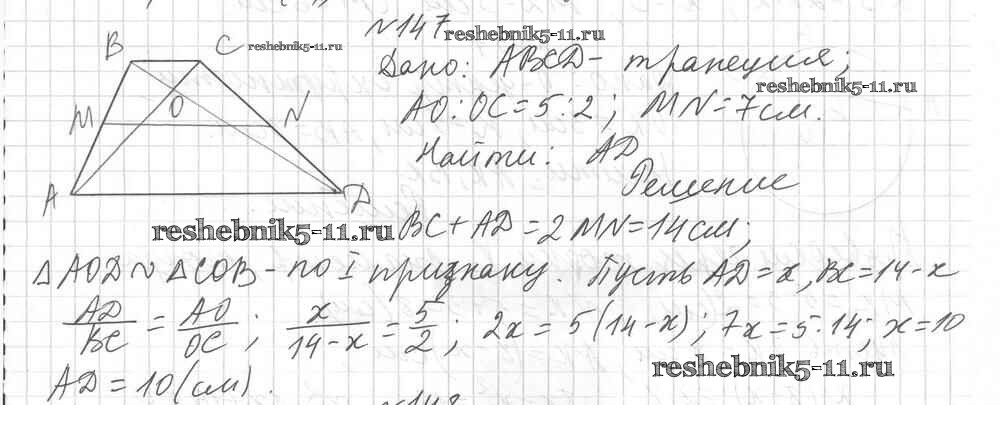 №147
reshebnik5-11.ru
B C reshebnik5-11.ru
Дано: ABCD - трапеция;
reshebnik5-11.ru
O
M N
AO:OC=5:2; MN=7см.
Найти: AD
A D
Решение
reshebnik5-11.ru
BC+AD=2MN=14см;
△AOD~△COB-по I признаку. Пусть AD=x, BC=14-x
AD/BC = AO/OC; x/14-x = 5/2; 2x=5(14-x); 7x=5·14; x=10
reshebnik5-11.ru
AD=10(см).